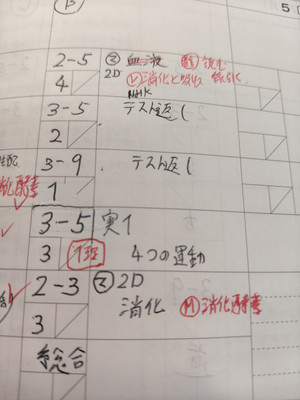 B
5
2-5 ③ 血液
4 2D Ⓜ消化と吸収
NHK
3-5 テスト返し
2
3-9 テスト返し
消化酵素 1
3-5 実1
3 1班 4つの運動
2-3 ③ 2D
3 消化 Ⓜ消化酵素
総合